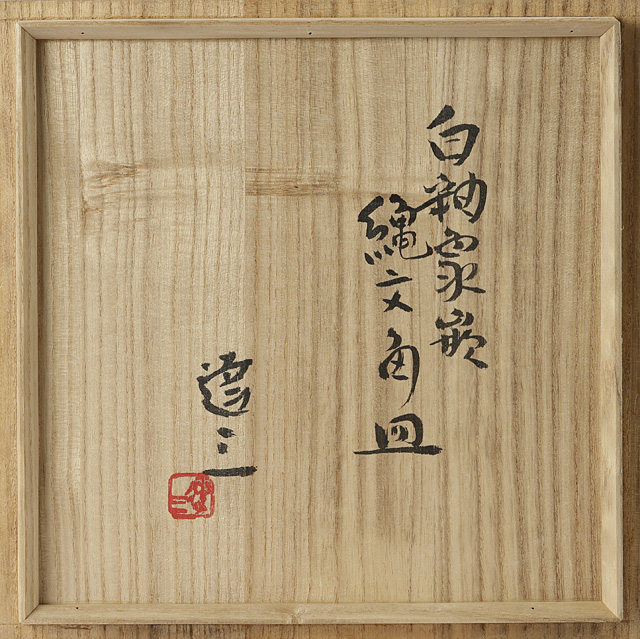 白釉象嵌
縄文角皿
達三